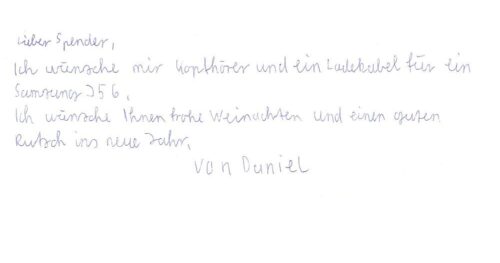 Lieber Spender,
Ich wünsche mir Kopfhörer und ein Ladekabel für ein
Samsung J5 6.
Ich wünsche Ihnen frohe Weinachten und einen guten
Rutsch ins neue Jahr.
von Daniel